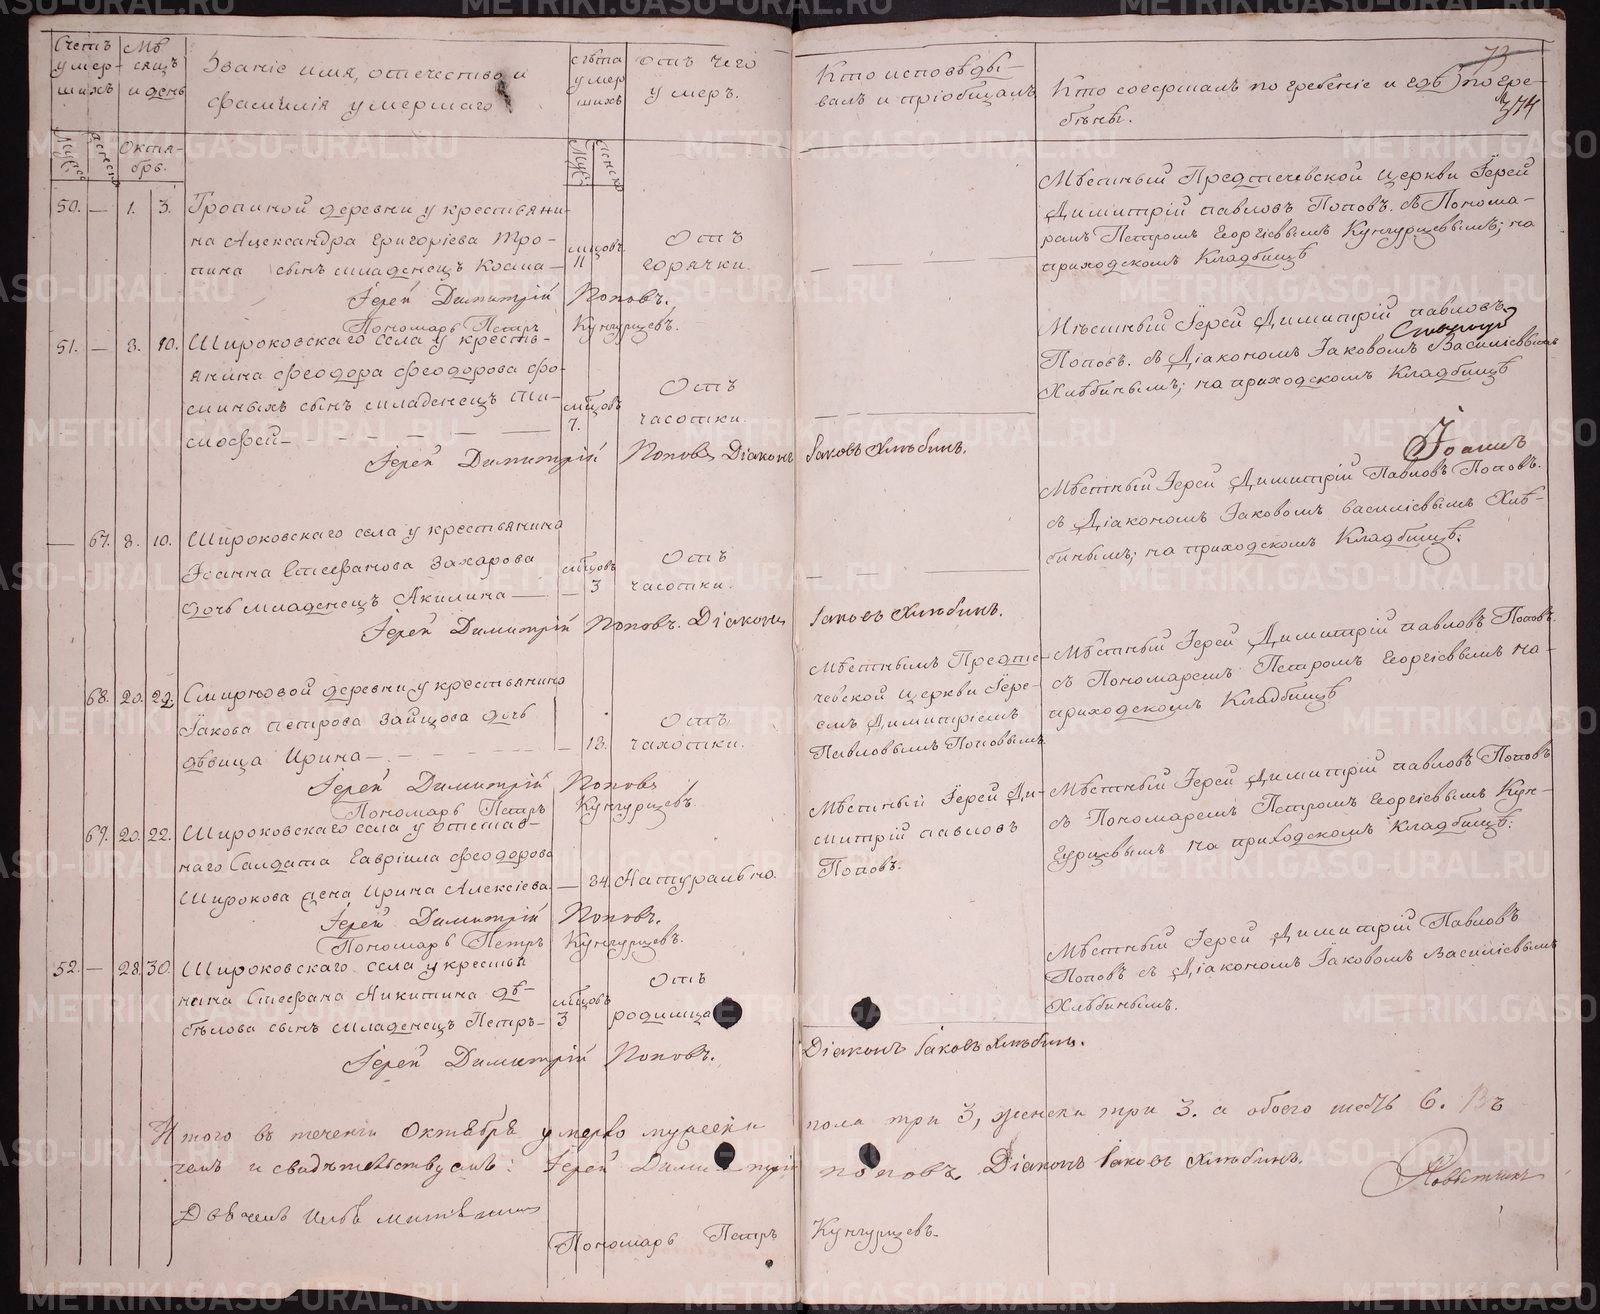 Счетъ умершихъ
Мѣсяцъ и день
Званіе имя, отечество и
фамилія умершаго
лѣта умершихъ
отъ чего
умеръ.
Кто исповѣды-
валъ и пріобщалъ
Кто совершалъ погребеніе и гдѣ погре-
бены.
72
374
Октя-
брь.
50. — 1. 3. Тропиной деревни у крестьяни-
на Александра Григоріева Тро-
пина сынъ младенецъ Косма —
мцовъ
11
Отъ
горячки.
Мѣстный Предтечевской церкви Іерей
Димитрій Павловъ Поповъ. съ Понома-
ремъ Петромъ Георгіевымъ Кунгурцевымъ; на
приходскомъ Кладбищѣ
Іерей Димитрій Поповъ.
Пономарь Петръ Кунгурцевъ.
51. — 8. 10. Широковскаго села у кресть-
янина Феодора Феодорова Фо-
миныхъ сынъ младенецъ Ти-
мофей —
мцовъ
7.
Отъ
чахотки.
Мѣстный Іерей Димитрій Павловъ
Поповъ. съ Діакономъ Іаковомъ Василіевымъ
Хлѣбинымъ; на приходскомъ Кладбищѣ
Іерей Димитрій Поповъ Діаконъ Іаковъ Хлѣбинъ.
— 67. 8. 10. Широковскаго села у крестьянина
Іоанна Стефанова Захарова
дочь младенецъ Акилина —
мцовъ
3
Отъ
чахотки.
Мѣстный Іерей Димитрій Павловъ Поповъ.
съ Діакономъ Іаковомъ Василіевымъ Хлѣ-
бинымъ; на приходскомъ Кладбищѣ.
Іерей Димитрій Поповъ. Діаконъ Іаковъ Хлѣбинъ.
68. 20. 22. Смирновой деревни у крестьянина
Іакова Петрова Зайцова дочь
дѣвица Ирина —
— 18.
Отъ
чахотки.
Мѣстнымъ Предте-
чевской церкви Іере-
емъ Димитріемъ
Павловымъ Поповымъ
Мѣстный Іерей Димитрій Павловъ Поповъ.
съ Пономаремъ Петромъ Георгіевымъ на-
приходскомъ Кладбищѣ
Іерей Димитрій Поповъ
Пономарь Петръ Кунгурцевъ.
69. 20. 22. Широковскаго села у отстав-
наго Салдата Гавріила Феодорова
Широкова жена Ирина Алексіева. — 84. Натурально.
Мѣстный Іерей Ди-
митрій Павловъ
Поповъ.
Мѣстный Іерей Димитрій Павловъ Поповъ
съ Пономаремъ Петромъ Георгіевымъ Кун-
гурцевымъ на приходскомъ Кладбищѣ.
Іерей Димитрій Поповъ.
Пономарь Петръ Кунгурцевъ.
52. — 28. 30. Широковскаго села у крестья
нина Стефана Никитина Дѣ-
белова сынъ младенецъ Петръ —
мцовъ
3
Отъ
родимца
Мѣстный Іерей Димитрій Павловъ
Поповъ съ Діакономъ Іаковомъ Василіевымъ
Хлѣбинымъ.
Іерей Димитрій Поповъ. Діаконъ Іаковъ Хлѣбинъ.
Итого въ теченіи Октября умерло мужеска пола три 3, женска три 3. а обоего шесть 6. Въ
чемъ и свидѣтельствуемъ: Іерей Димитрій Поповъ Діаконъ Іаковъ Хлѣбинъ.
Повытчикъ
Пономарь Петръ Кунгурцевъ.
METRIKI.GASO-URAL.RU